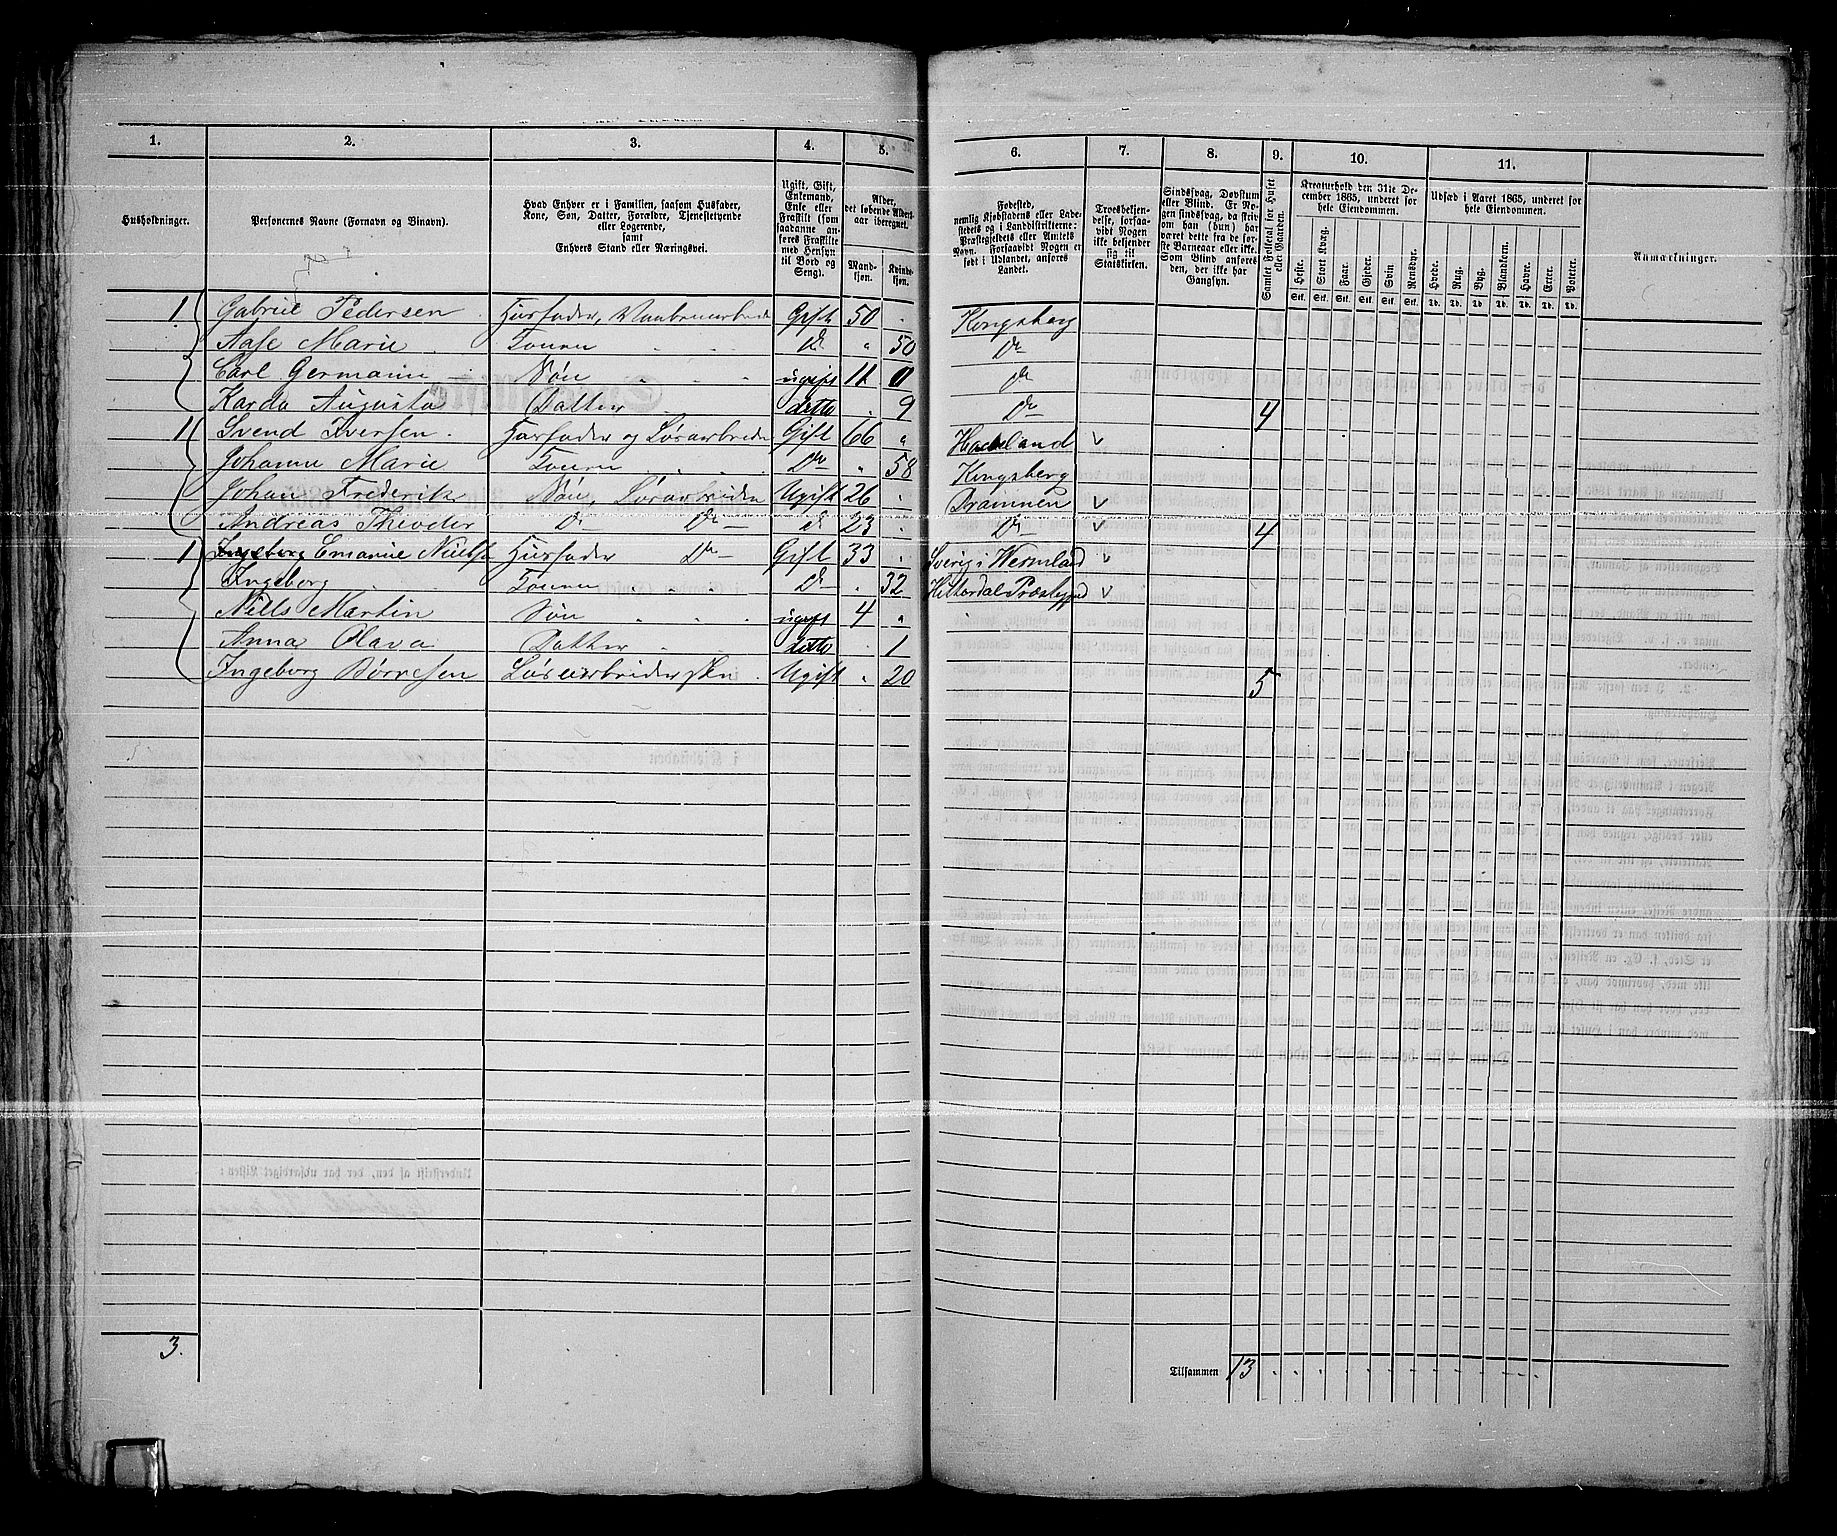 1. 2. 3. 4. 5. 6. 7. 8. 9. 10. 11.
Husholdninger.
Personernes Navne (Fornavn og Binavn).
Hvad Enhver er i Familien, saasom Husfader, Kone, Søn, Datter, Forældre, Tjenestetyende eller Logerende, samt Enhvers Stand eller Næringsvei.
Ugift, Gift, Enkemand, Enke eller Fraskilt (som saadanne anføres Fraskilte med Hensyn til Bord og Seng).
Alder, det løbende Alders-aar iberegnet.
Mandkjøn. Kvindekjøn.
Fødested, nemlig Kjøbstadens eller Ladestedets og i Landdistrikterne: Præstegjeldets eller Amtets Navn. Forsaavidt Nogen er født i Udlandet, anføres Landet.
Troesbekjendelse, forsaavidt Nogen ikke bekjender sig til Statskirken.
Sindssvag, Døvstum eller Blind. Er Nogen sindssvag, da skriv om han (hun) har været dette fra de første Barneaar eller ikke. Som Blind anføres den, der ikke har Gangsyn.
Samlet Folketal for Huset eller Gaarden.
Kreaturhold den 31te December 1865, underet for hele Eiendommen.
Heste. Stort Kvæg. Faar. Gjeder. Svin Rensdyr.
Stk. Stk. Stk. Stk. Stk. Stk.
Udsæd i Aaret 1865, underet for hele Eiendommen.
Hvede. Rug. Byg. Blandkorn. Havre. Erter. Poteter.
Td. Td. Td. Td. Td. Td. Td.
Anmærkninger.
1 Gabriel Pedersen Gift 50 Kongsberg
Aase Marie Konen D° " 50 D°
Carl Germann Søn ugift 11 D°
Karda Augusta Datter detto 9 D° 4
1 Svend Iversen Husfader og Løsarbeider Gift 66 " Hadeland v
Johanne Marie Konen D° " 58 Kongsberg
Johan Frederik Søn, Løsarbeider Ugift 26 Drammen v
Andreas Theoder D° D° D° 23 D° v 4
1 Emanuel Nielsen Husfader D° Gift 33 Sverig i Wermland v
Ingeborg Konen D° 32 Hitterdal Præstegjeld v
Niels Martin Søn ugift 4 "
Anna Olava Datter detto 1
Ingeborg Ugift " 20 5
3.
Tilsammen 13